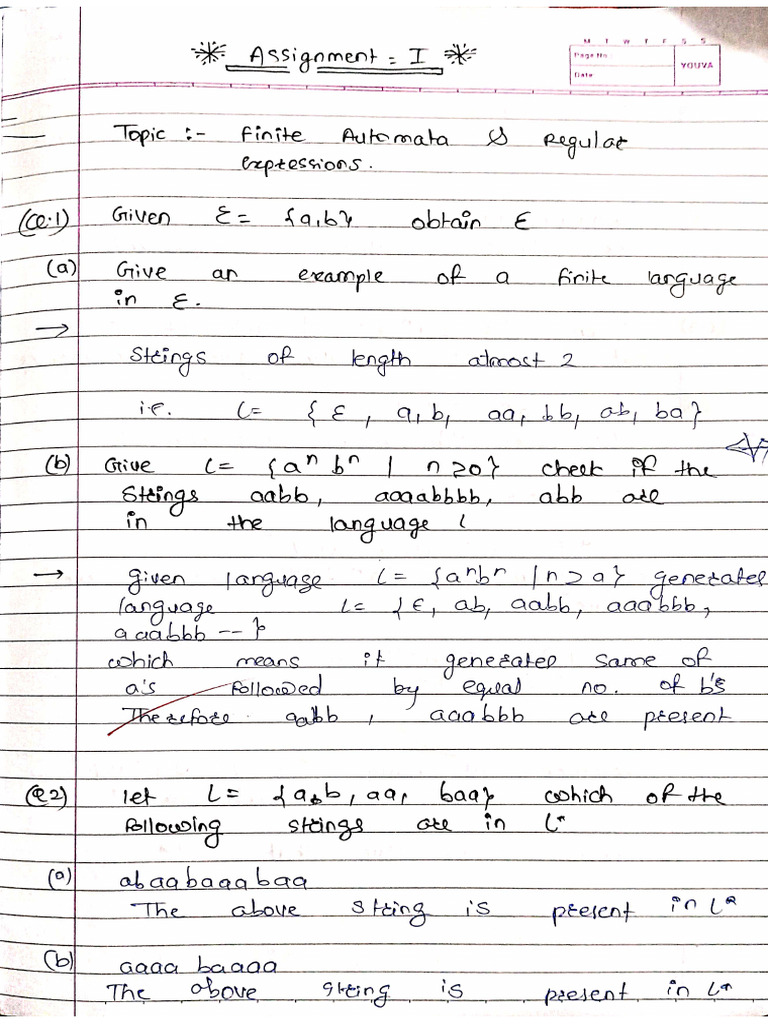 Assignment = I
M T W T F S S
Page No.:
Date:
YOUVA
Topic :- Finite Automata & Regular
expressions.
(Q.1) Given Ɛ = {a,b} obtain Ɛ
(a) Give an example of a finite language
in Ɛ.
→
Strings of length atmost 2
i.e. L = { Ɛ, a, b, aa, bb, ab, ba}
(b) Give L = {aⁿ bⁿ | n ≥ 0} check if the
strings aabb, aaaabbbb, abb are
in the language L
→ given language L = {aⁿbⁿ | n ≥ a} generates
language L = {Ɛ, ab, aabb, aaabbb,
aaabbb -- }
which means it generates same of
a's followed by equal no. of b's
Therefore aabb, aaabbb are present
(Q2) let L = {a,b, aa, baa} which of the
following strings are in L*
(a) abaabaaabaa
The above string is present in L*
(b) aaaa baaaa
The above string is present in L*